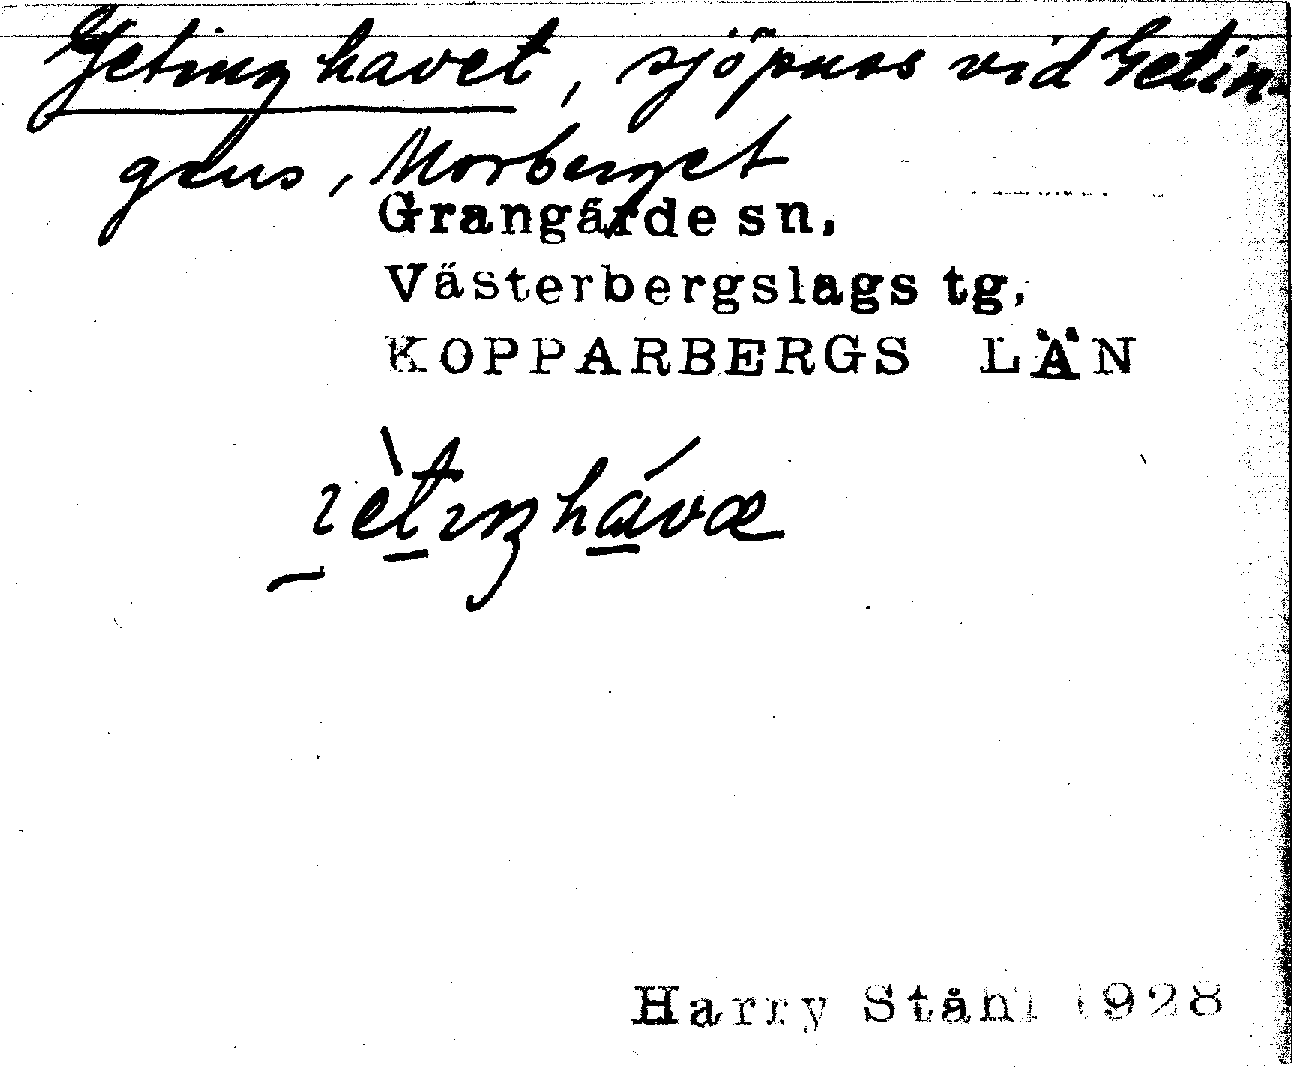 Getinghavet, sjöpnos vid Getin-
gens, Morberget
Grangärde sn,
Västerbergslags tg,
KOPPARBERGS LÄN
Harry Ståhl 1928